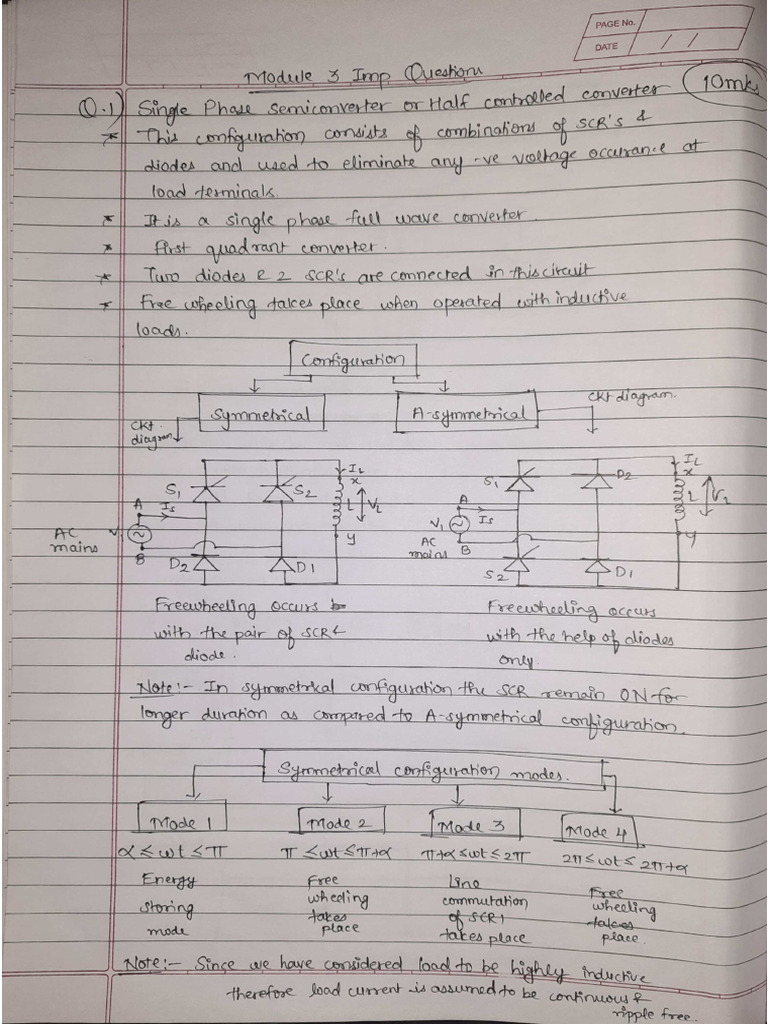 PAGE No.
DATE / /
Module 3 Imp Questions
Q.1) Single Phase semiconverter or Half controlled converter 10mks
* This configuration consists of combinations of SCR's &
diodes and used to eliminate any -ve voltage occurance at
load terminals.
* It is a single phase full wave converter.
* first quadrant converter.
* Two diodes & 2 SCR's are connected in this circuit
* Free wheeling takes place when operated with inductive
loads.
Configuration
Symmetrical
A-symmetrical
Ckt diagram.
Ckt.
diagram
S1
S2
IL
x
L
VL
y
A
Is
V1
AC
mains
B
D2
D1
S1
D2
IL
x
L
VL
y
A
Is
V1
AC
mains
B
S2
D1
Freewheeling occurs
with the pair of SCR &
diode.
Freewheeling occurs
with the help of diodes
only.
Note:- In symmetrical configuration the SCR remain ON for
longer duration as compared to A-symmetrical configuration.
Symmetrical configuration modes.
Mode 1
Mode 2
Mode 3
Mode 4
α ≤ ωt ≤ π
π ≤ ωt ≤ π+α
π+α ≤ ωt ≤ 2π
2π ≤ ωt ≤ 2π+α
Energy
storing
mode
Free
wheeling
takes
place
Line
commutation
of SCR1
takes place
Free
wheeling
takes
place.
Note:- Since we have considered load to be highly inductive
therefore load current is assumed to be continuous &
ripple free.